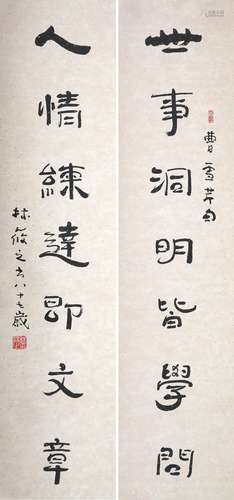 世事洞明皆學問
曹雪芹句
人情練達即文章
林筱之書八十七歲